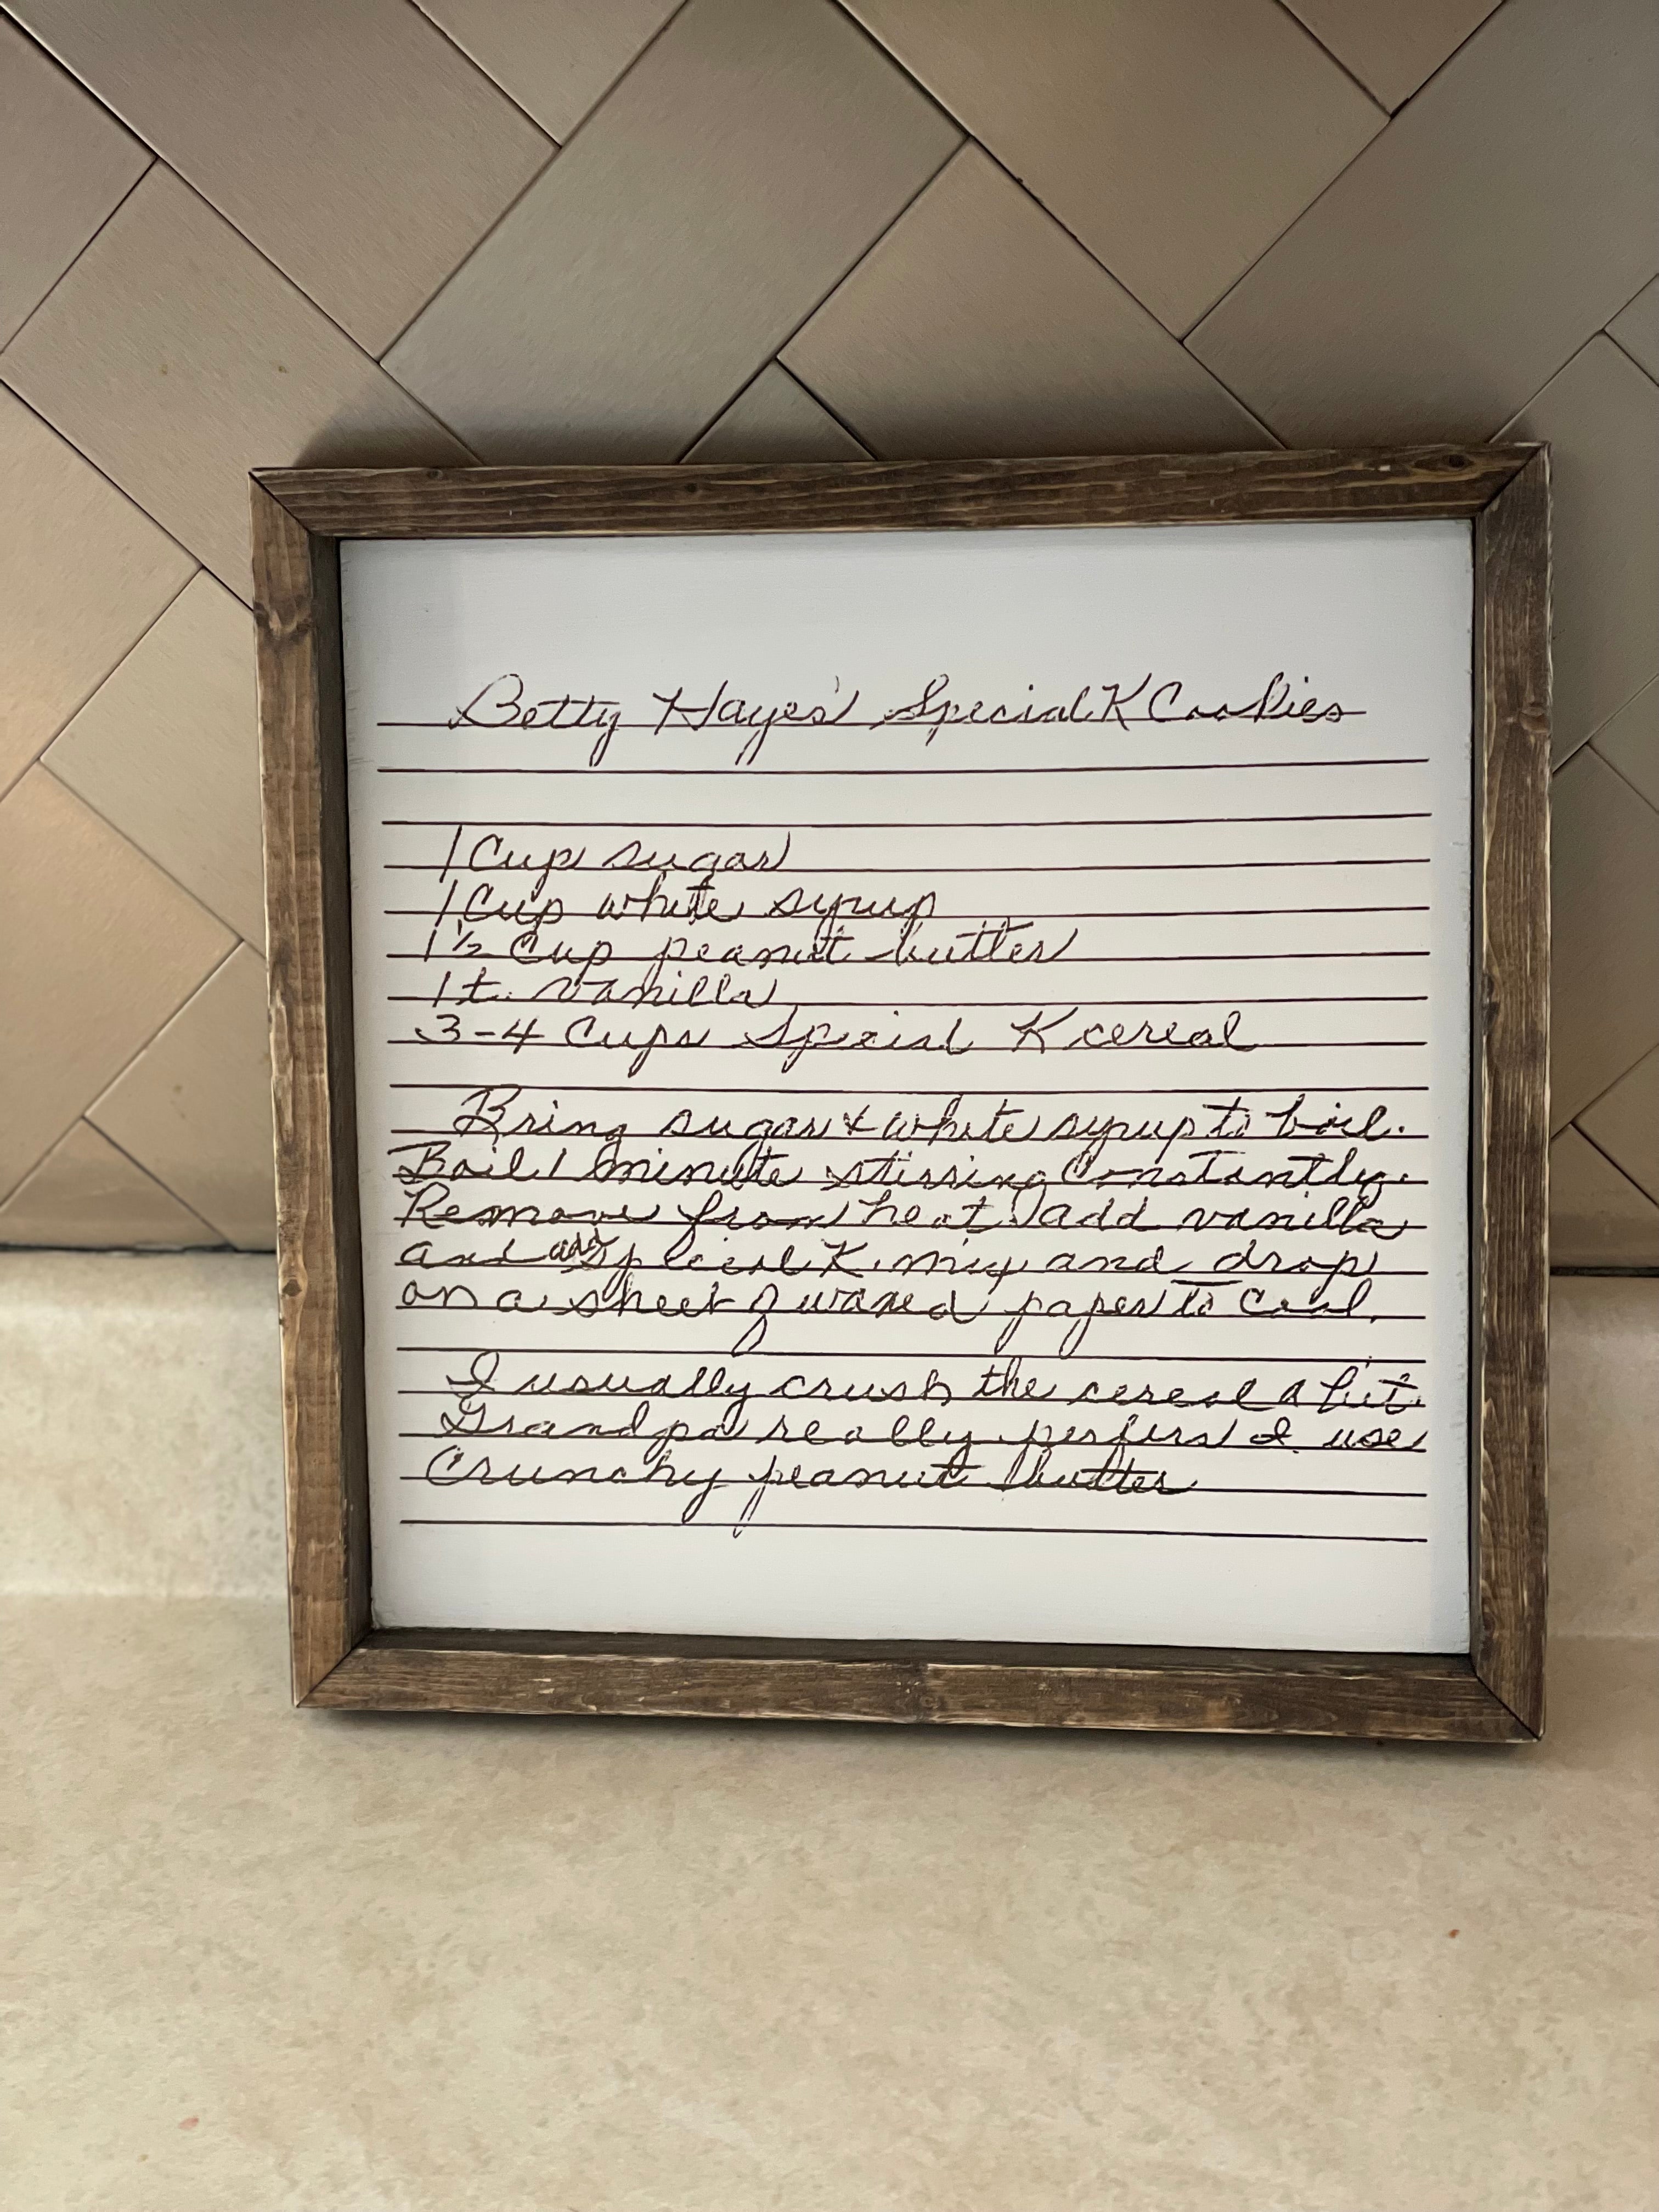 Betty Hayes' Special K Cookies
1 Cup sugar
1 Cup white syrup
1 1/2 Cup peanut butter
1 t. vanilla
3-4 Cups Special K cereal
Bring sugar & white syrup to boil.
Boil 1 minute stirring Constantly.
Remove from heat. add vanilla
and add Special K. mix and drop
on a sheet of waxed paper to cool.
I usually crush the cereal a bit.
Grandpa really perfers I use
Crunchy peanut butter